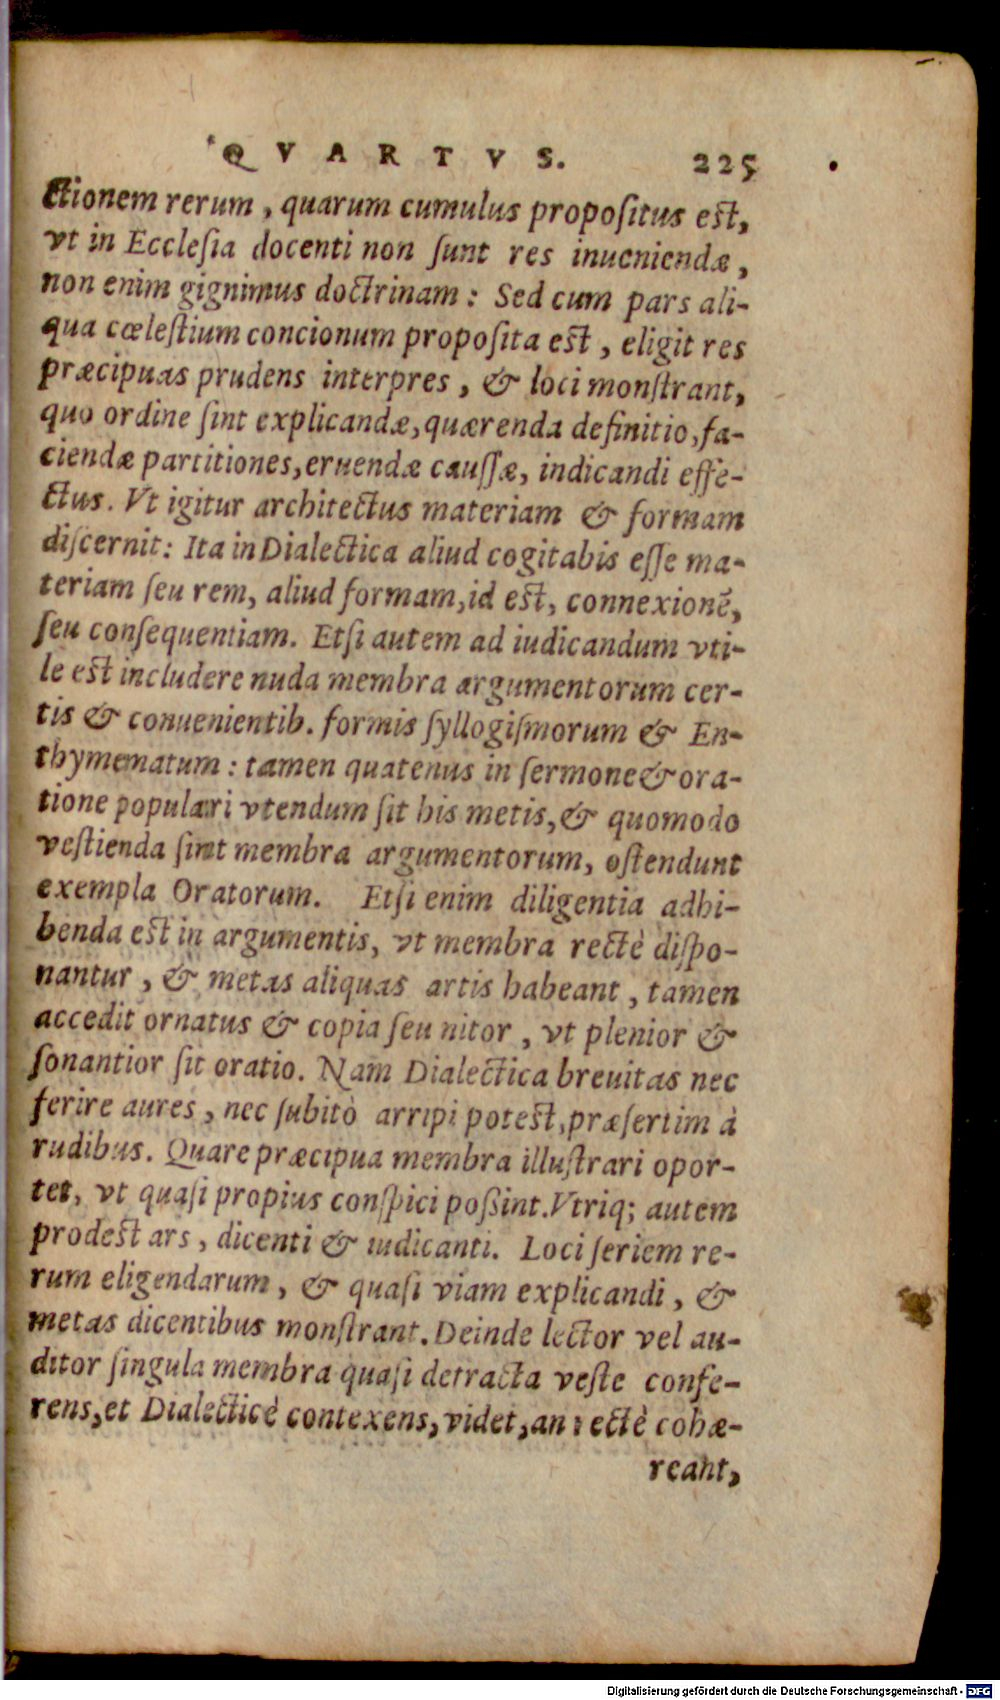 QVARTVS. 225
ctionem rerum, quarum cumulus propoſitus est,
vt in Eccleſia docenti non ſunt res inueniendæ,
non enim gignimus doctrinam: Sed cum pars ali-
qua cœleſtium concionum propoſita est, eligit res
præcipuas prudens interpres, & loci monſtrant,
quo ordine ſint explicandæ, quærenda definitio, fa-
ciendæ partitiones, eruendæ cauſſæ, indicandi effe-
ctus. Vt igitur architectus materiam & formam
diſcernit: Ita in Dialectica aliud cogitabis eſſe ma-
teriam ſeu rem, aliud formam, id est, connexionē,
ſeu conſequentiam. Etſi autem ad iudicandum vti-
le est includere nuda membra argumentorum cer-
tis & conuenientib. formis ſyllogiſmorum & En-
thymematum: tamen quatenus in ſermone & ora-
tione populari vtendum ſit his metis, & quomodo
veſtienda ſint membra argumentorum, oſtendunt
exempla Oratorum. Etſi enim diligentia adhi-
benda est in argumentis, vt membra rectè diſpo-
nantur, & metas aliquas artis habeant, tamen
accedit ornatus & copia ſeu nitor, vt plenior &
ſonantior ſit oratio. Nam Dialectica breuitas nec
ferire aures, nec ſubitò arripi potest, præſertim à
rudibus. Quare præcipua membra illuſtrari opor-
tet, vt quaſi propius conſpici poßint. Vtriq; autem
prodest ars, dicenti & iudicanti. Loci ſeriem re-
rum eligendarum, & quaſi viam explicandi, &
metas dicentibus monſtrant. Deinde lector vel au-
ditor ſingula membra quaſi detracta veſte confe-
rens, et Dialecticè contexens, videt, an rectè cohæ-
reant,
Digitalisierung gefördert durch die Deutsche Forschungsgemeinschaft - DFG